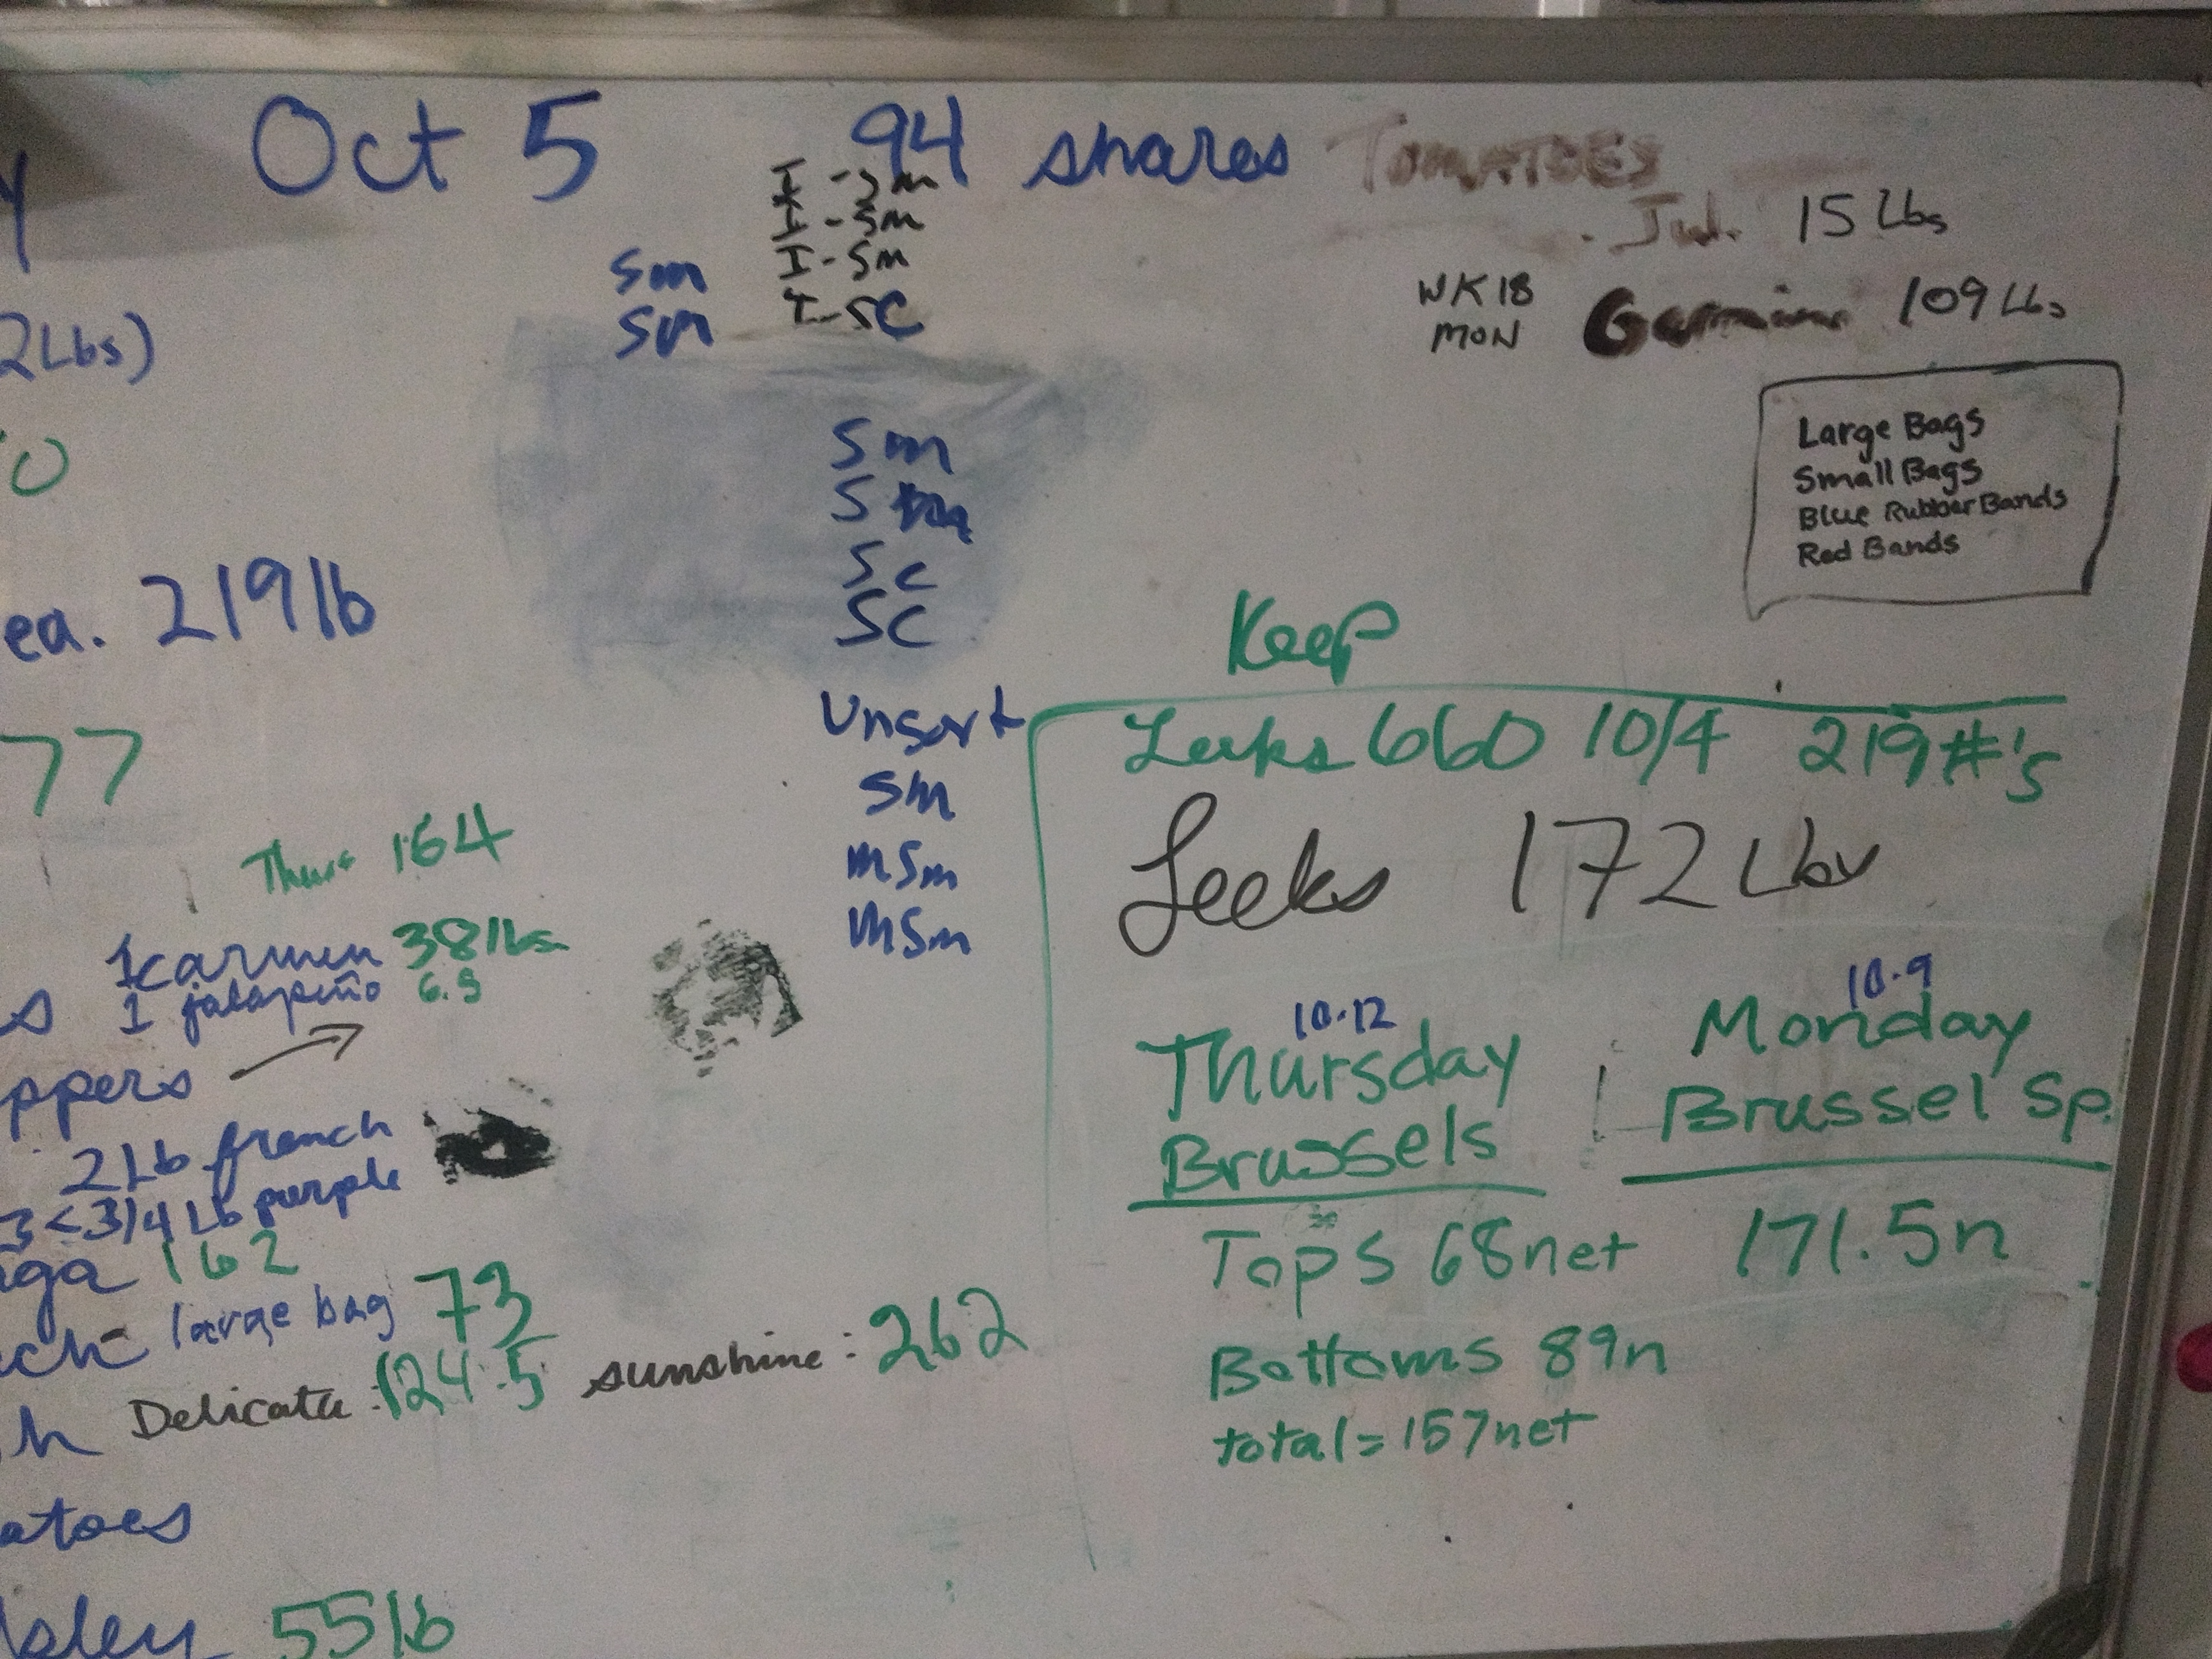 Oct 5 94 shares TOMATOES
I - Sm
I - Sm
I - Sm
I - SC
Sm
Sm
Jul. 15 Lbs
WK 18
MON
109 Lbs
2 Lbs)
Large Bags
Small Bags
Blue Rubber Bands
Red Bands
Sm
S
SC
SC
ea. 219 lb
Keep
Unsort
Sm
mSm
mSm
Leeks 660 10/4 219 #'s
Leeks 172 Lbs
77
Thurs 164
1 carmen 38 lbs
1 jalapeño 6.5
ppers
2 Lb french
3 < 3/4 Lb purple
aga 162
ch - large bag 73
h Delicata : 124.5 sunshine : 262
atoes
sley 55 lb
10.12
Thursday
Brussels
Tops 68 net
Bottoms 89n
total = 157 net
10.9
Monday
Brussel Sp.
171.5n